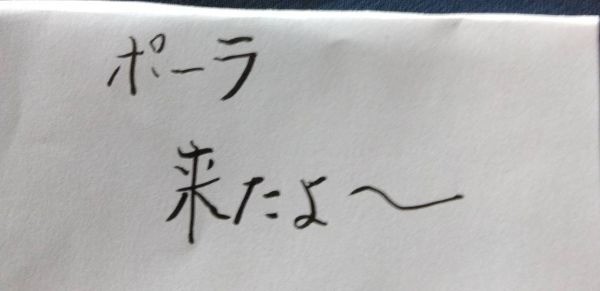 ポーラ
来たよ〜